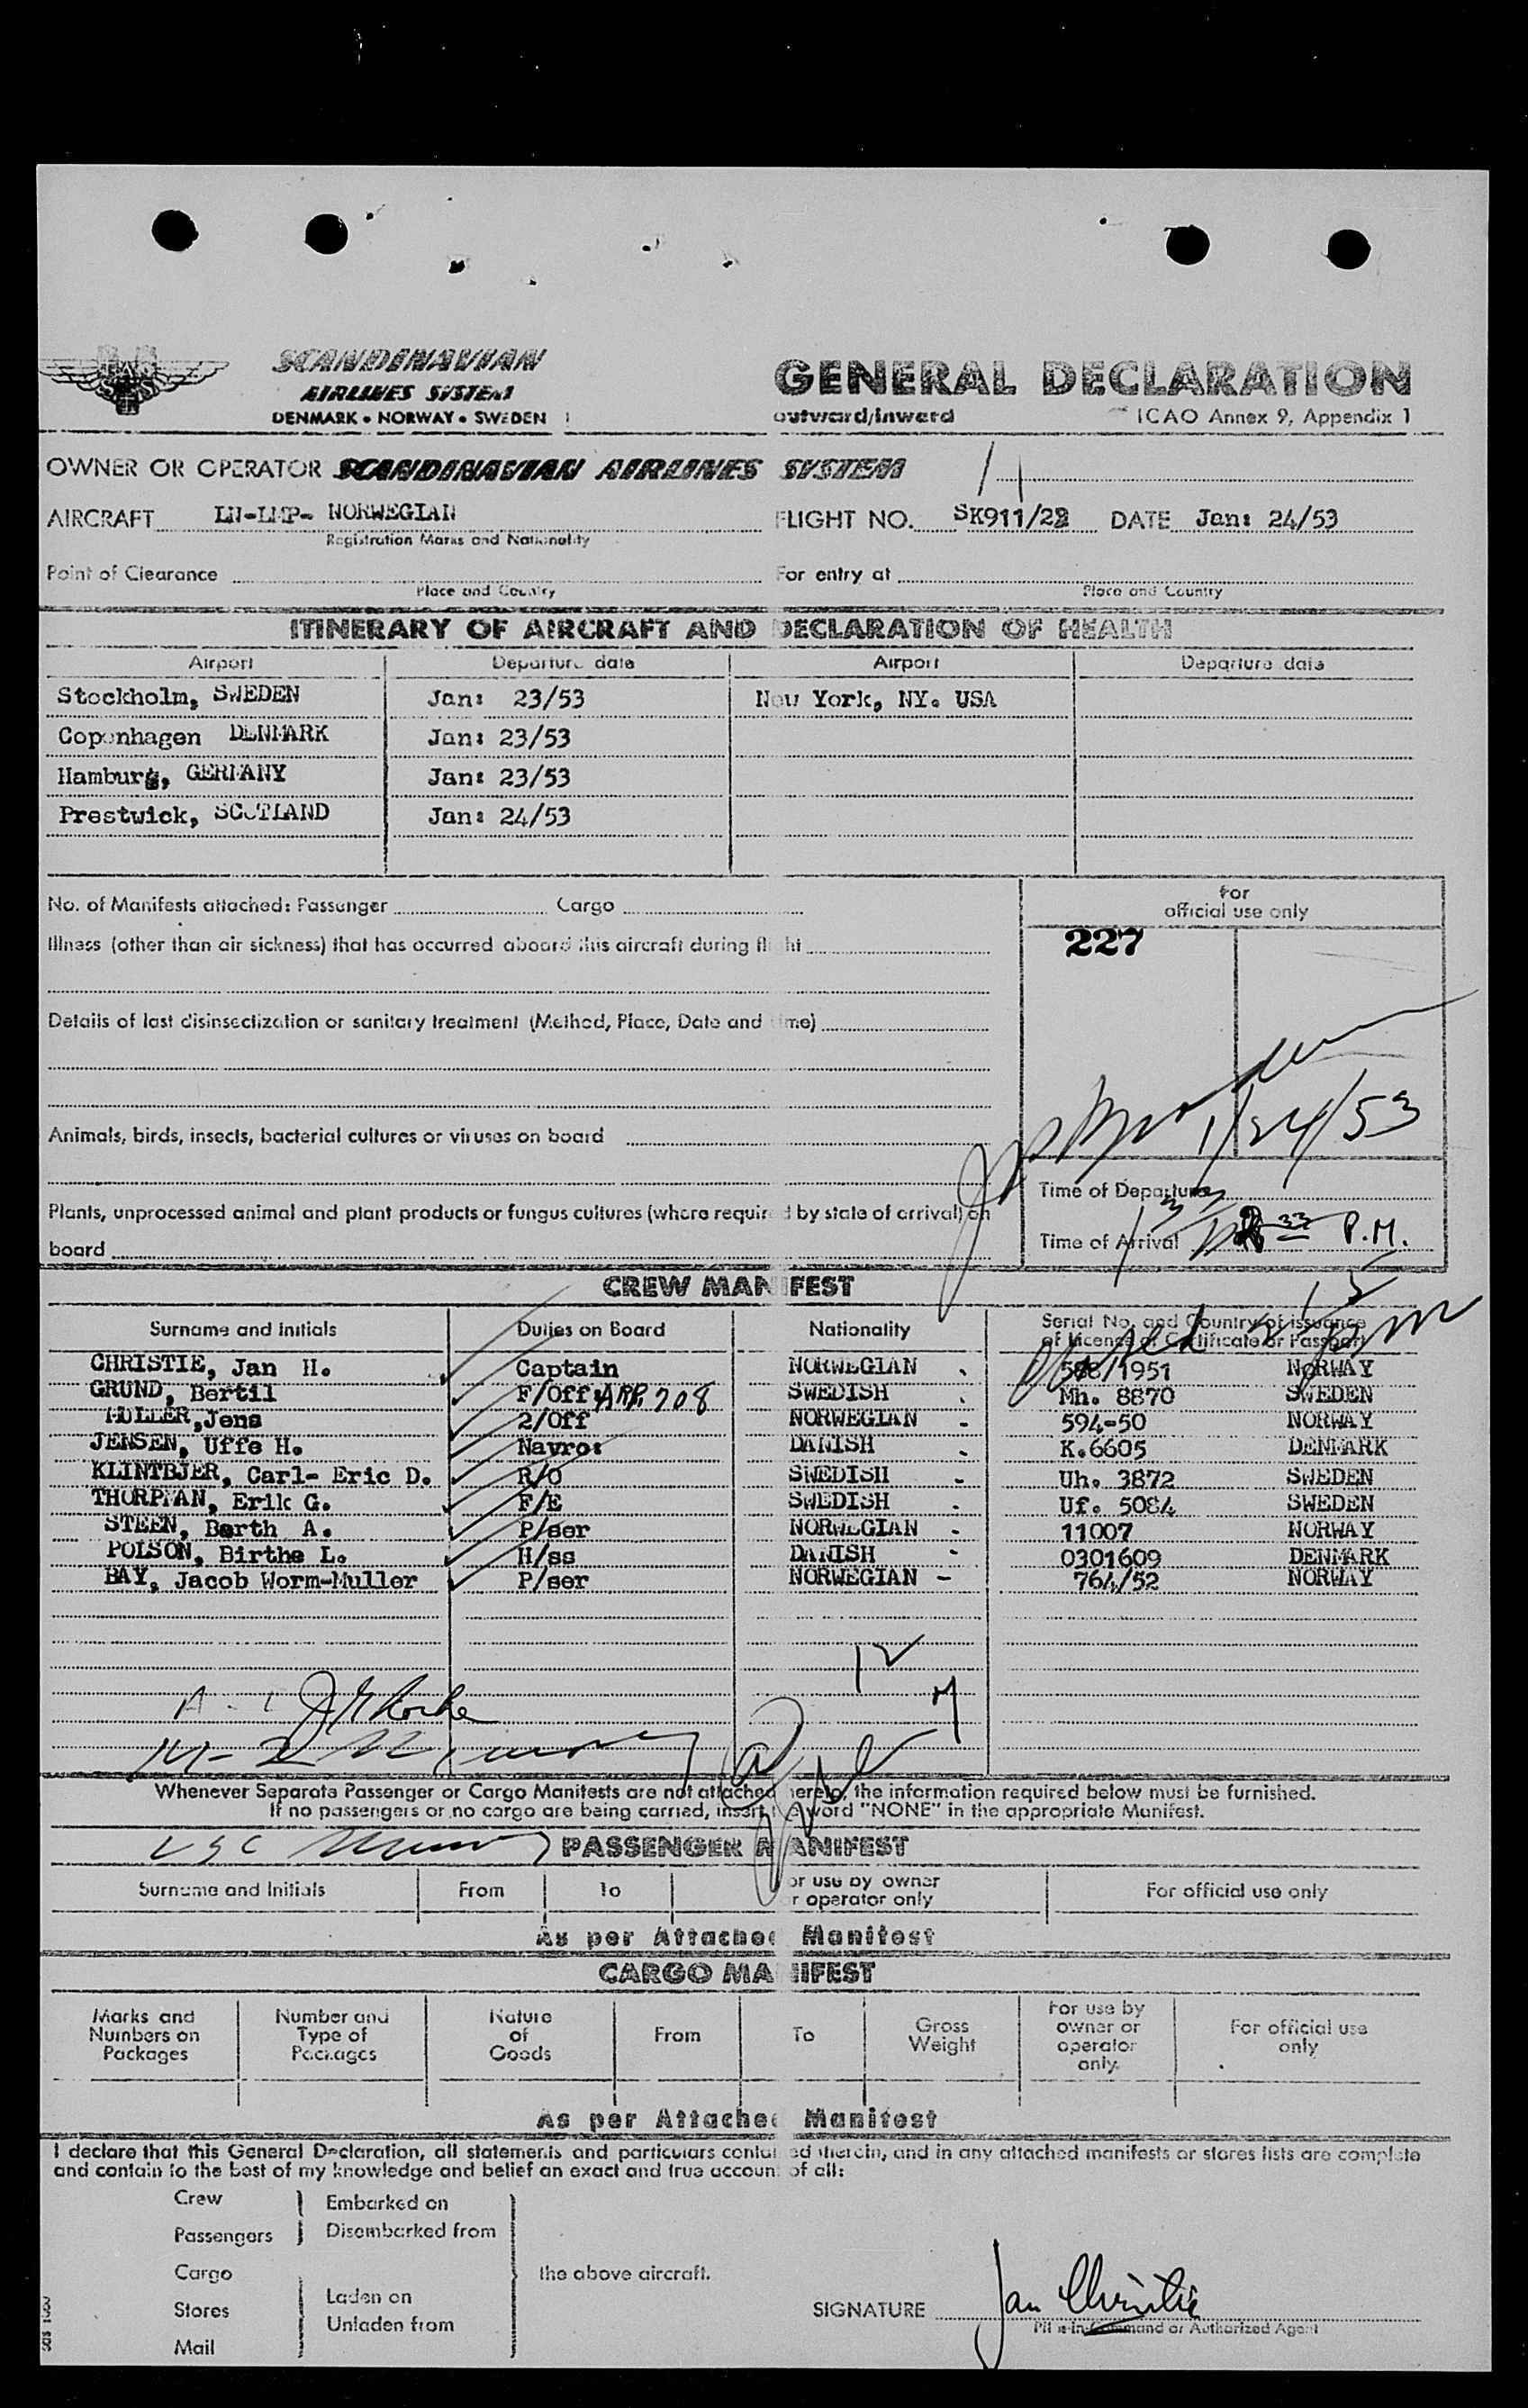 SCANDINAVIAN
AIRLINES SYSTEM
DENMARK • NORWAY • SWEDEN
GENERAL DECLARATION
outward/inward
ICAO Annex 9, Appendix 1
OWNER OR OPERATOR SCANDINAVIAN AIRLINES SYSTEM
AIRCRAFT LN-LMP- NORWEGIAN FLIGHT NO. SK911/22 DATE Jan: 24/53
Registration Marks and Nationality
Point of Clearance For entry at
Place and Country Place and Country
ITINERARY OF AIRCRAFT AND DECLARATION OF HEALTH
Airport Departure date Airport Departure date
Stockholm, SWEDEN Jan: 23/53 New York, NY. USA
Copenhagen DENMARK Jan: 23/53
Hamburg, GERMANY Jan: 23/53
Prestwick, SCOTLAND Jan: 24/53
No. of Manifests attached: Passenger Cargo
For
official use only
227
Illness (other than air sickness) that has occurred aboard this aircraft during flight
Details of last disinsectization or sanitary treatment (Method, Place, Date and time)
1/24/53
Animals, birds, insects, bacterial cultures or viruses on board
Time of Departure
Plants, unprocessed animal and plant products or fungus cultures (where required by state of arrival) on
board
Time of Arrival P.M.
CREW MANIFEST
Surname and Initials Duties on Board Nationality Serial No. and Country of issuance
of Licence or Certificate or Passport
CHRISTIE, Jan H. Captain NORWEGIAN 588/1951 NORWAY
GRUND, Bertil F/Off: ARR. 208 SWEDISH Mh. 8870 SWEDEN
MULLER, Jens 2/Off NORWEGIAN 594-50 NORWAY
JENSEN, Uffe H. Navro: DANISH K.6605 DENMARK
KLINTBJER, Carl- Eric D. R/O SWEDISH Uh. 3872 SWEDEN
THORPMAN, Erik G. F/E SWEDISH Uf. 5084 SWEDEN
STEEN, Barth A. P/ser NORWEGIAN 11007 NORWAY
POLSON, Birthe L. H/ss DANISH 0301609 DENMARK
BAY, Jacob Worm-Muller P/ser NORWEGIAN 764/52 NORWAY
12
Whenever Separate Passenger or Cargo Manifests are not attached hereto, the information required below must be furnished.
If no passengers or no cargo are being carried, insert the word "NONE" in the appropriate Manifest.
PASSENGER MANIFEST
Surname and Initials From To For use by owner
or operator only For official use only
As per Attached Manifest
CARGO MANIFEST
Marks and
Numbers on
Packages Number and
Type of
Packages Nature
of
Goods From To Gross
Weight For use by
owner or
operator
only. For official use
only
As per Attached Manifest
I declare that this General Declaration, all statements and particulars contained therein, and in any attached manifests or stores lists are complete
and contain to the best of my knowledge and belief an exact and true account of all:
Crew Embarked on
Passengers Disembarked from
Cargo the above aircraft.
Stores Laden on
Unladen from
Mail
SIGNATURE Jan Christie
Pilot-in-Command or Authorized Agent